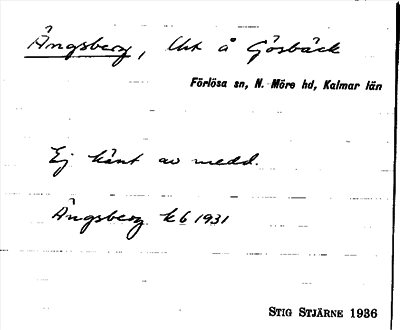 Ängsberg, Uk å Gösbäck
Förlösa sn, N. Möre hd, Kalmar län
Ej känt av medd.
Ängsberg kb 1931
STIG STJÄRNE 1936